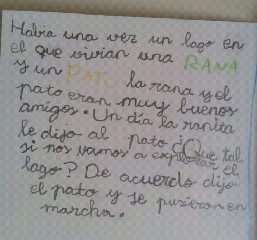 Habia una vez un lago en
el que vivian una RANA
y un PATO la rana y el
pato eran muy buenos
amigos. Un día la ranita
le dijo al pato ¿Que tal
si nos vamos a explorar el
lago? De acuerdo dijo
el pato y se pusieron en
marcha.